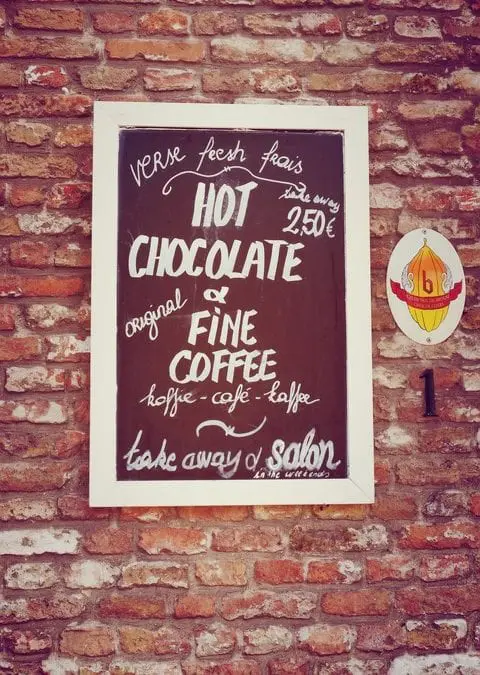 VERSE fresh frais
HOT
take away
2,50€
CHOCOLATE
&
original
FINE
COFFEE
koffie - café - kaffee
take away & salon
in the weekends
b
1